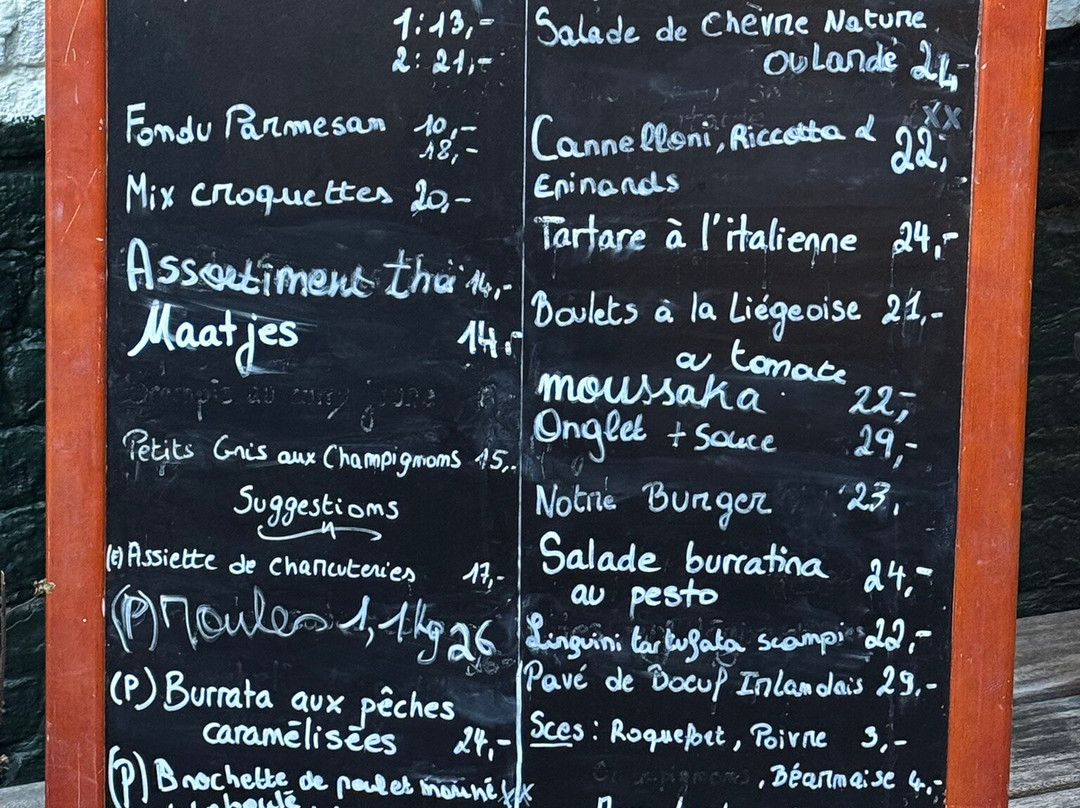 1:13,-
2:21,-
Fondu Parmesan 10,-
18,-
Mix croquettes 20,-
Assortiment thaï 14,-
Maatjes 14,-
Petits Gris aux Champignons 15,-
Suggestions
(E) Assiette de charcuteries 17,-
(P) Moules 1,1kg 26
(P) Burrata aux pêches
caramélisées 24,-
(P) Brochette de poulet mariné xx
Salade de Chèvre Nature
ou Lardé 24,-
xx
Cannelloni, Riccotta & 22,-
Epinards
Tartare à l'italienne 24,-
Boulets à la Liégeoise 21,-
ou tomate
moussaka 22,-
Onglet + Sauce 29,-
Notre Burger 23,
Salade burratina 24,-
au pesto
Linguini tartufata scampis 22,-
Pavé de Boeuf Irlandais 29,-
Sces: Roquefort, Poivre 3,-
, Béarnaise 4,-